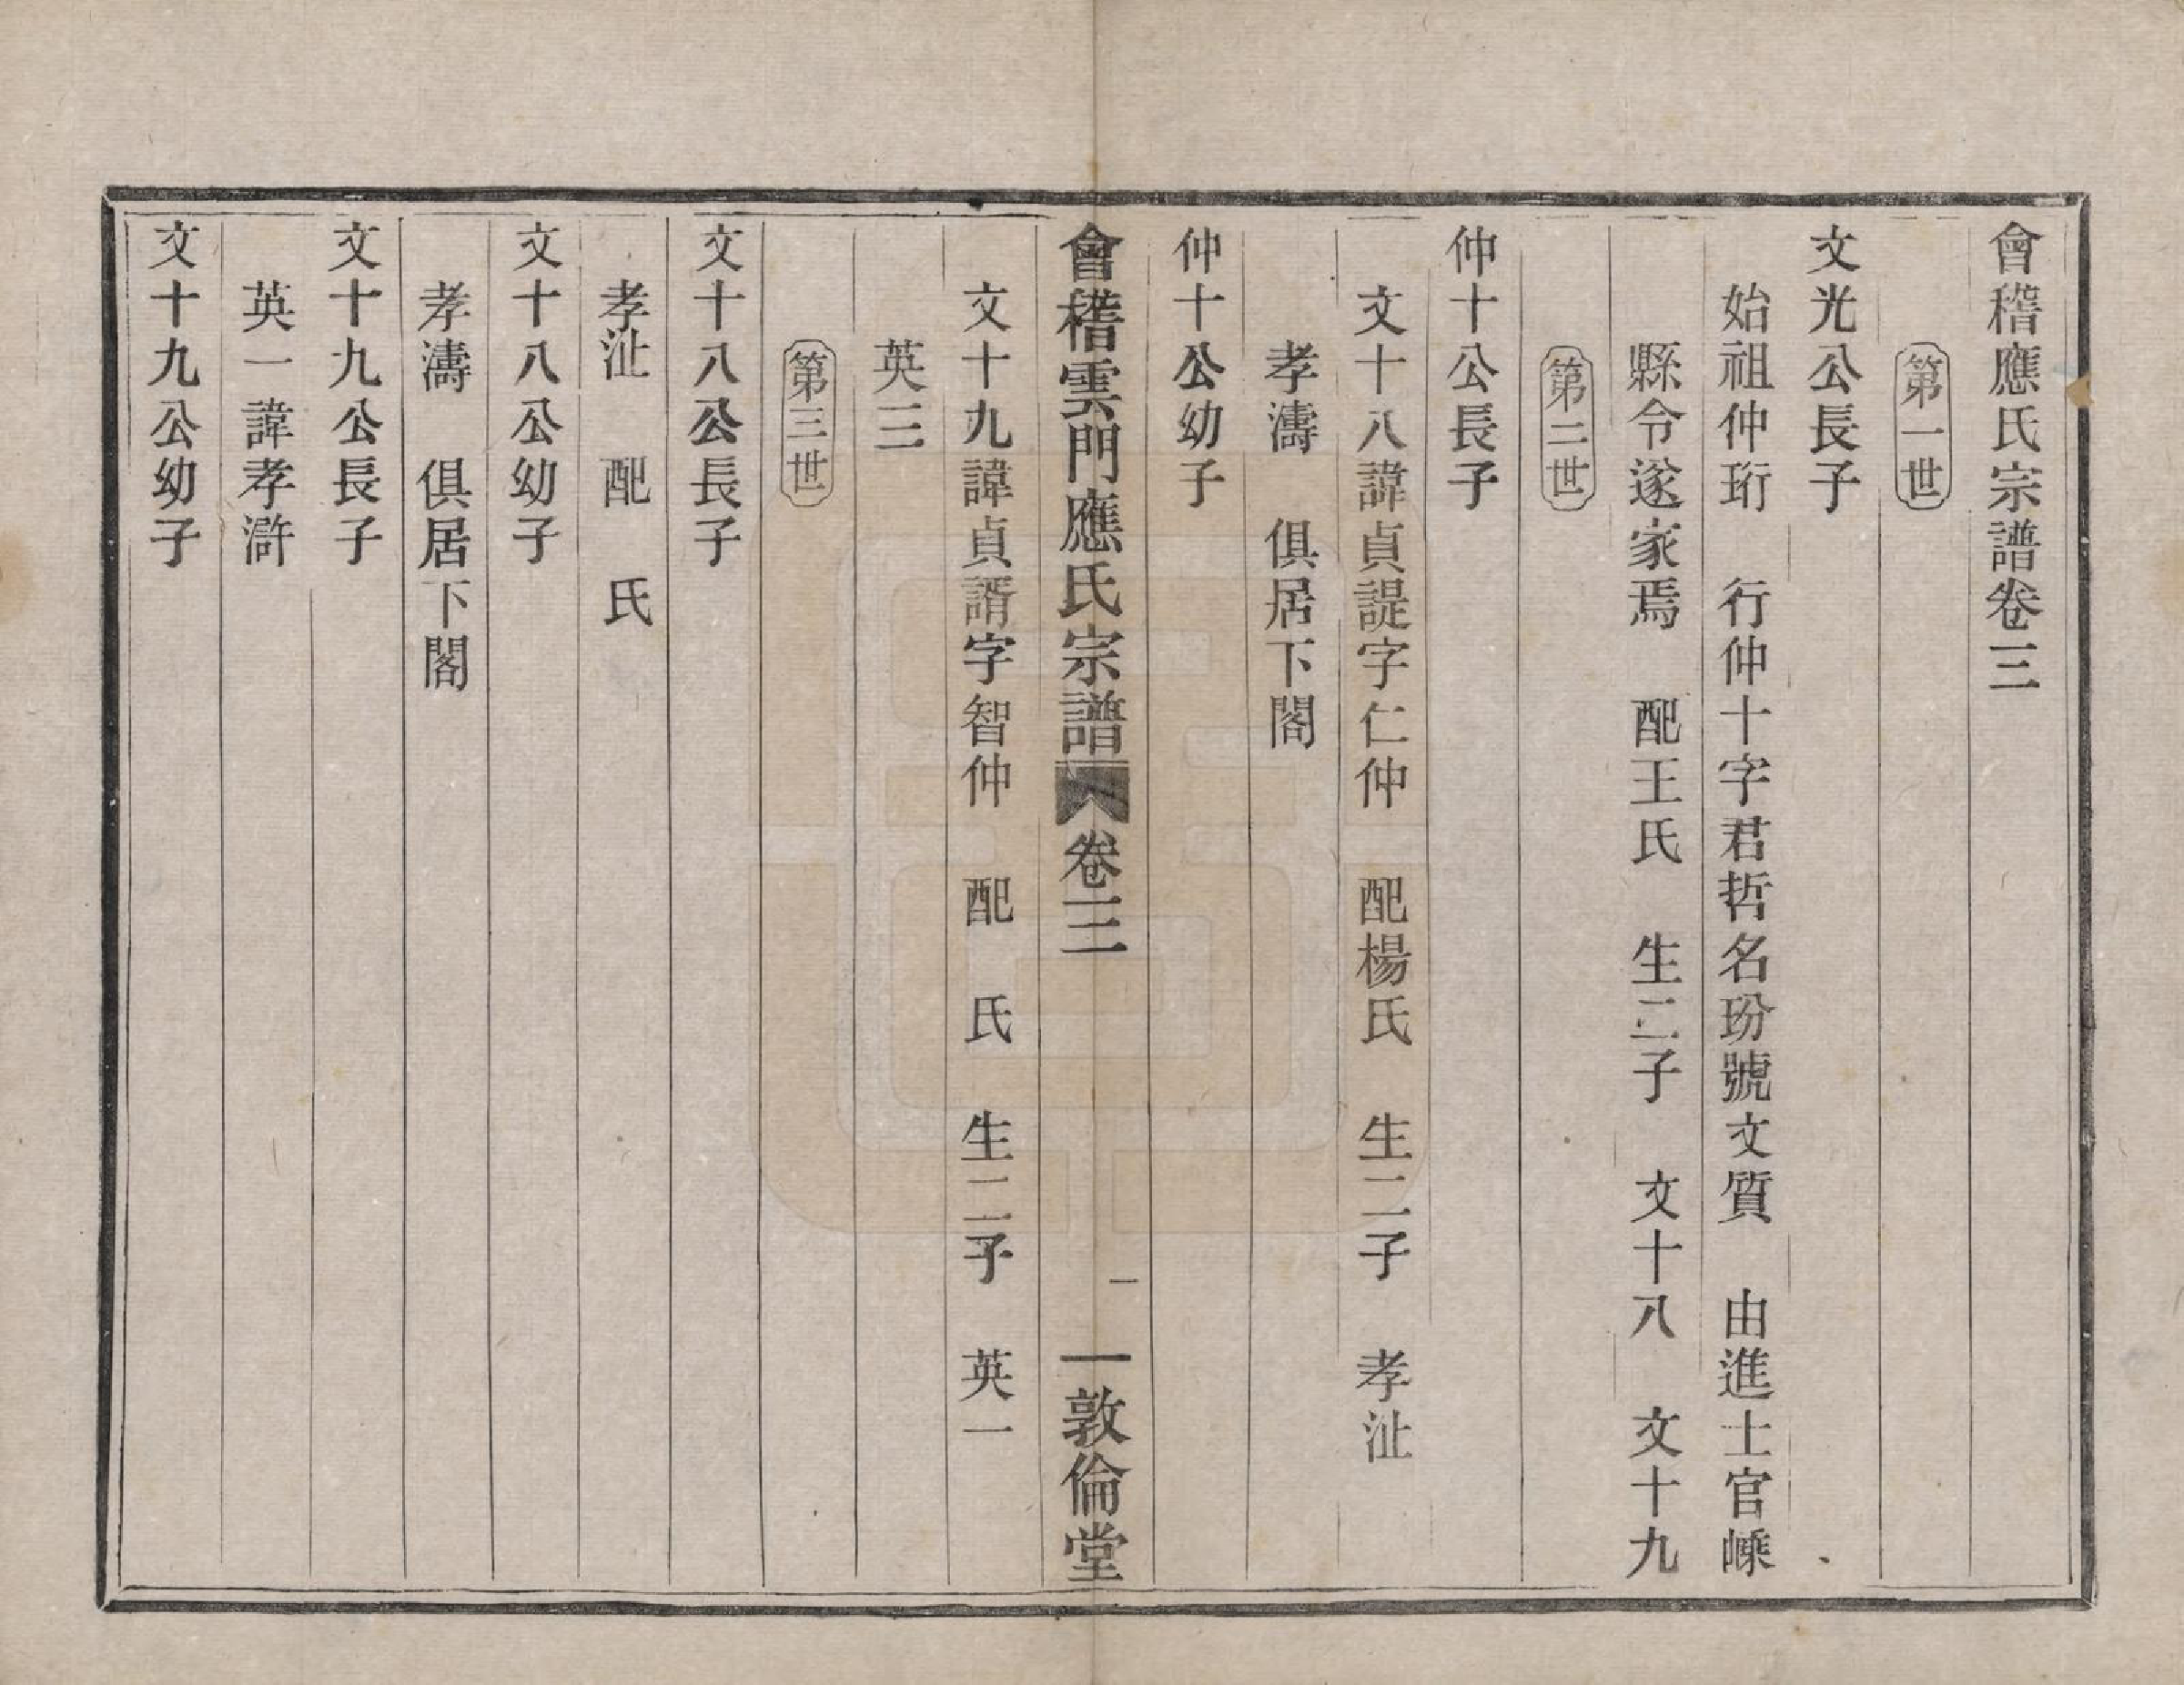 會稽應氏宗譜卷三
第一世
文光公長子
始祖仲珩　行仲十字君哲名玢號文質　由進士官嵊
縣令遂家焉　配王氏　生二子　文十八　文十九
第二世
仲十公長子
文十八諱貞諟字仁仲　配楊氏　生二子　孝沚
孝濤　俱居下閣
仲十公幼子
會稽雲門應氏宗譜　卷三　一　敦倫堂
文十九諱貞諝字智仲　配　氏　生二子　英一
英三
第三世
文十八公長子
孝沚　配　氏
文十八公幼子
孝濤　俱居下閣
文十九公長子
英一諱孝滸
文十九公幼子